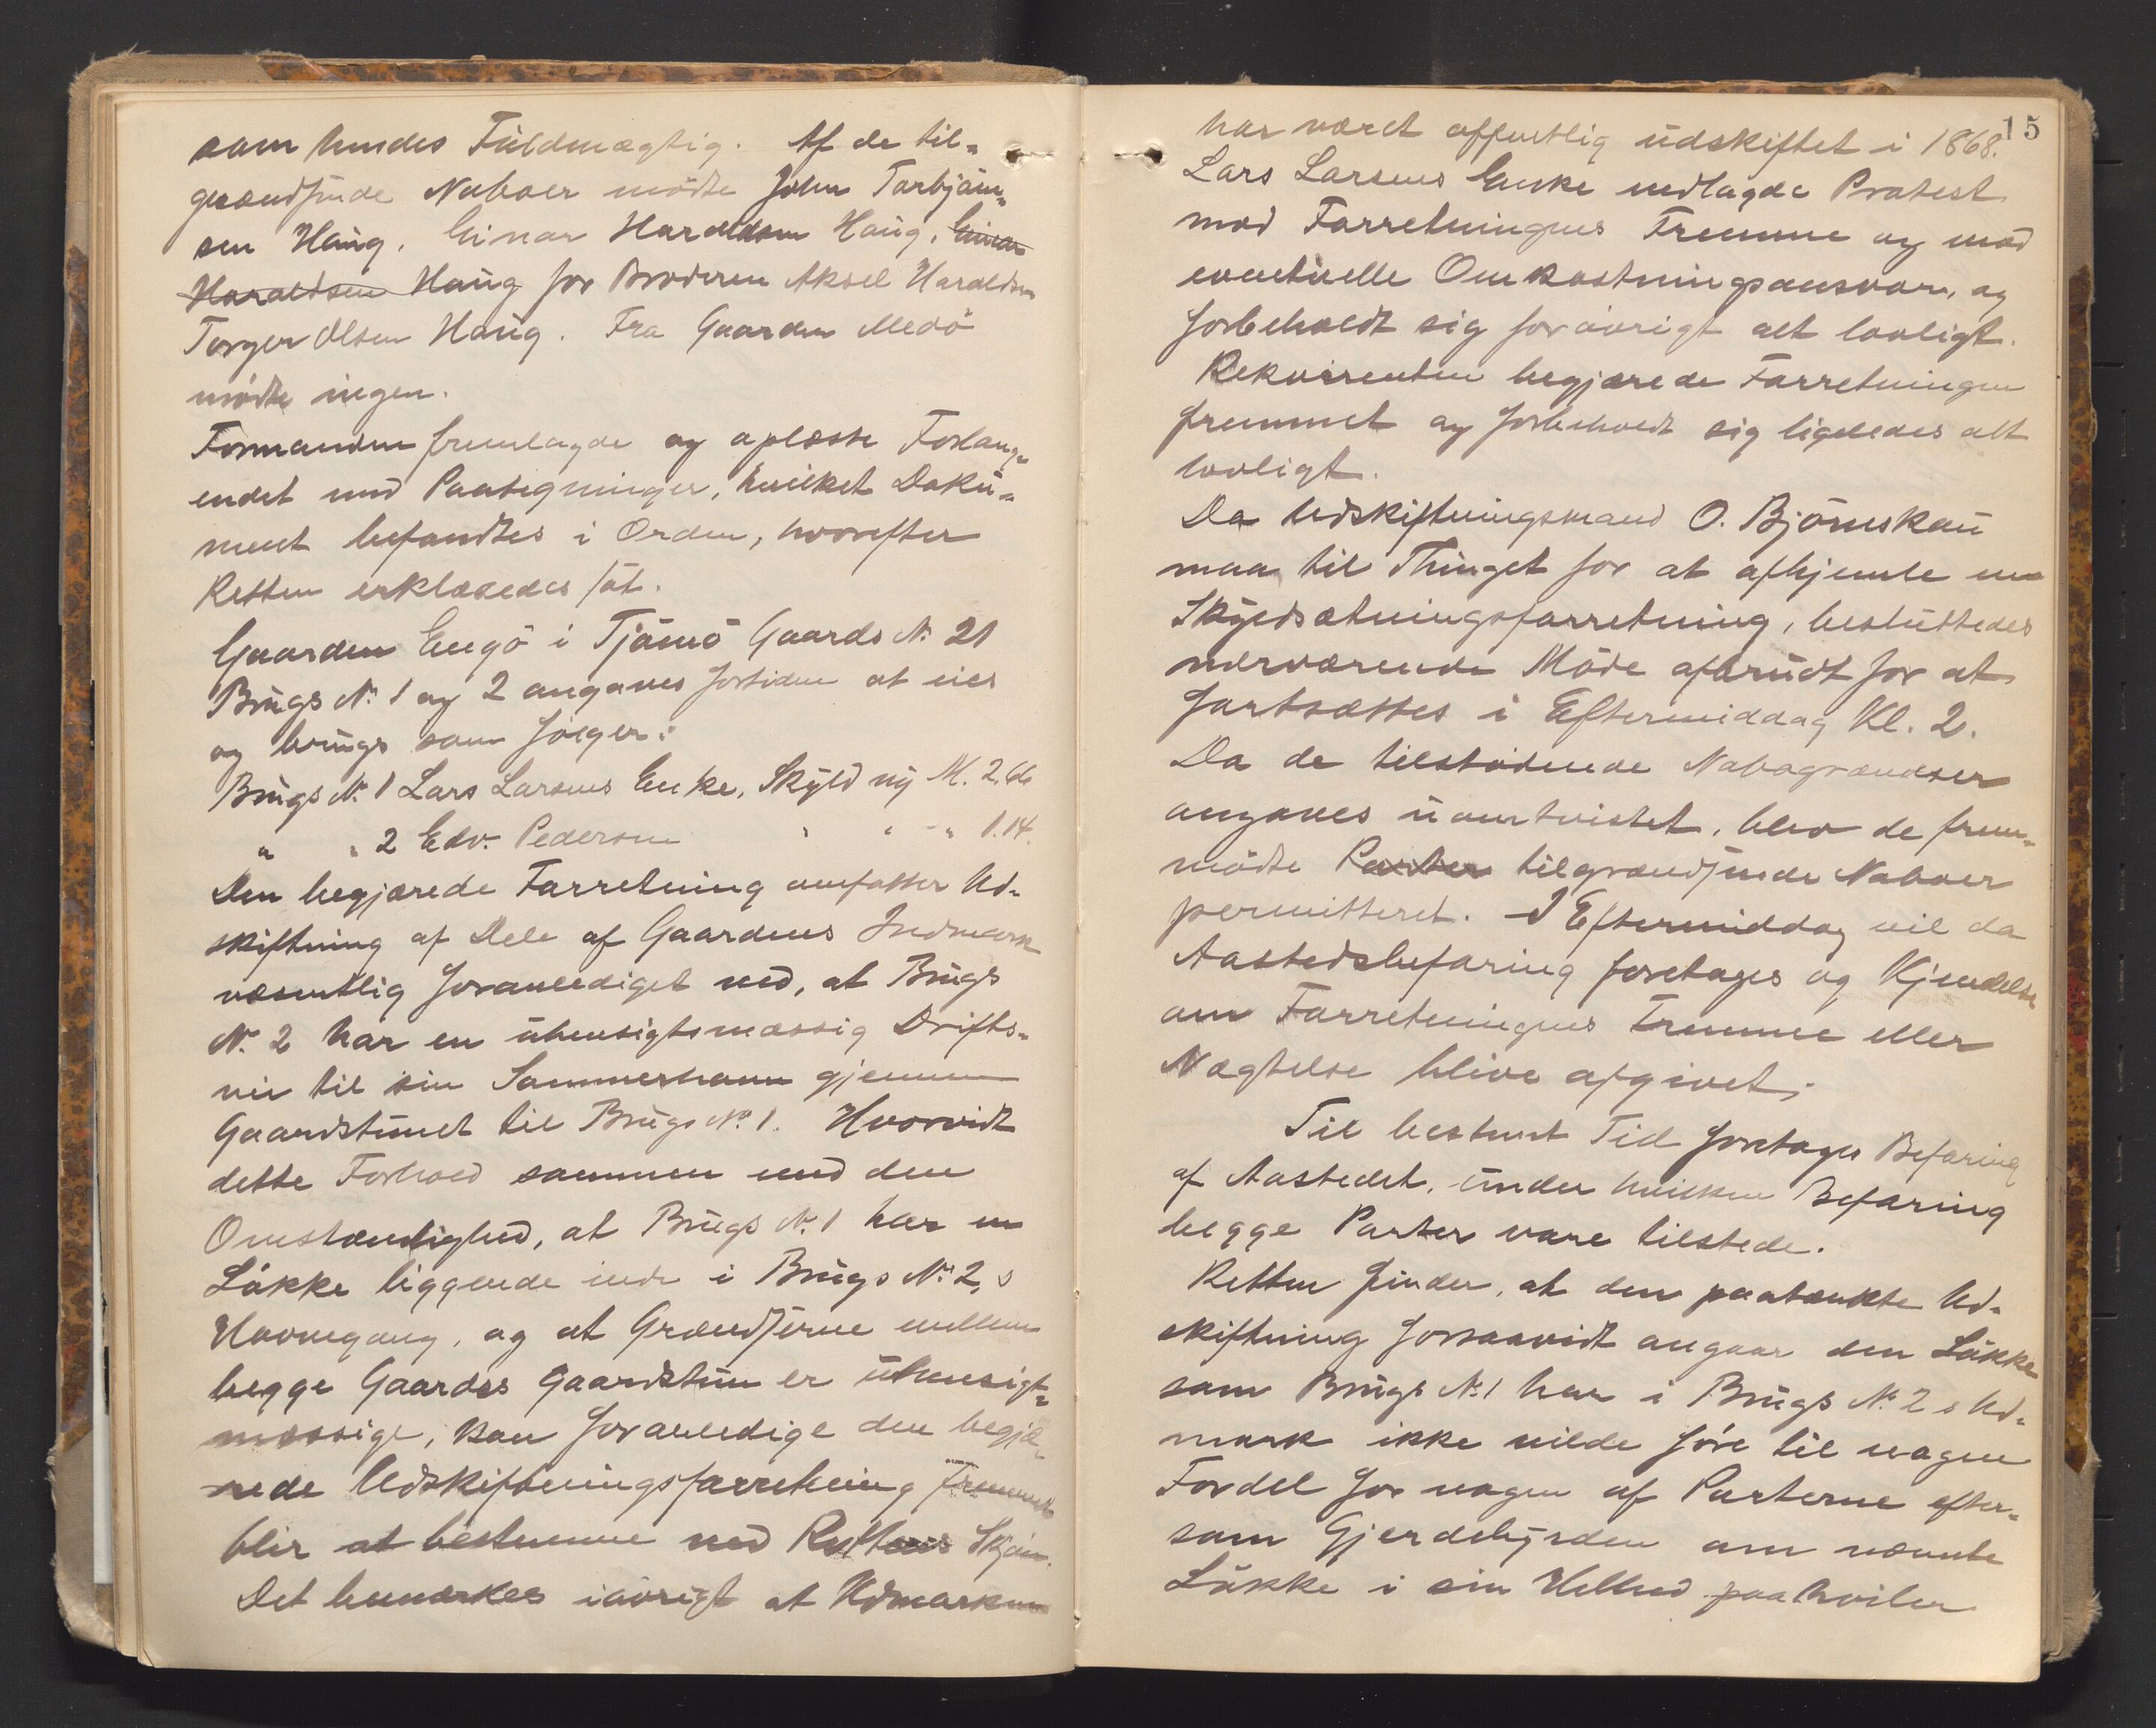 som hendes Fuldmægtig. Af de til-
grændsende Naboer mödte John Torbjörn-
sen Haug. Einar Haraldsen Haug, Einar
Haraldsen Haug for Broderen Aksel Haraldsen
Torger Olsen Haug. Fra Gaarden Medö
mödte ingen.
Formanden fremlagde og oplæste Forlang-
endet med Paategninger, hvilket Doku-
ment befandtes i Orden, hvorefter
Retten erklæredes sat.
Gaarden Engö i Tjömö Gaards No 21
Brugs No 1 og 2 angaves fortiden at eies
og bruges som fölger:
Brugs No 1 Lars Larsens Enke, Skyld ny M. 2.66
" " 2 Edv. Pedersen " " " 1.14.
Den begjærede Forretning omfatter Ud-
skiftning af Dele af Gaardens Indmark
væsentlig foranlediget ved, at Brugs
No. 2 har en uhensigtsmæssig Drifts-
vei til sin Sommerhavn gjennem
Gaardstunet til Brugs No 1. Hvorvidt
dette Forhold sammen med den
Omstændighed, at Brugs No. 1 har en
Lökke liggende inde i Brugs No 2,s
Havnegang, og at Grændserne mellem
begge Gaardes Gaardstun er uhensigt-
mæssige, kan foranledige den begjæ-
rede Udskiftningsforretning fremmet
blir at bestemme ved Rettens Skjön.
Det bemærkes iövrigt at Udmarken
15
har været offentlig udskiftet i 1868.
Lars Larsens Enke nedlagde Protest
mod Forretningens Fremme og mod
eventuelle Omkostningsansvar, og
forbeholdt sig forövrigt alt lovligt.
Rekvirenten begjærede Forretningen
fremmet og forbeholdt sig ligeledes alt
lovligt.
Da Udskiftningsmand O. Björnskau
maa til Thinget for at afhjemle en
Skyldsætningsforretning, besluttedes
nærværende Möde afbrudt for at
fortsættes i Eftermiddag Kl. 2.
Da de tilstödende Nabogrændser
angaves uomtvistet, blev de frem-
mödte Parter tilgrændsende Naboer
permitteret. I Eftermiddag vil da
Aastedsbefaring foretages og Kjendelse
om Forretningens Fremme eller
Nægtelse blive afgivet.
Til bestemt Tid foretages Befaring
af Aastedet, under hvilken Befaring
begge Parter vare tilstede.
Retten finder, at den paatænkte Ud-
skiftning forsaavidt angaar den Lökke
som Brugs No 1 har i Brugs No. 2 s Ud-
mark ikke vilde före til nogen
Fordel for nogen af Parterne efter-
som Gjerdebyrden om nævnte
Lökke i sin Helhed paahviler